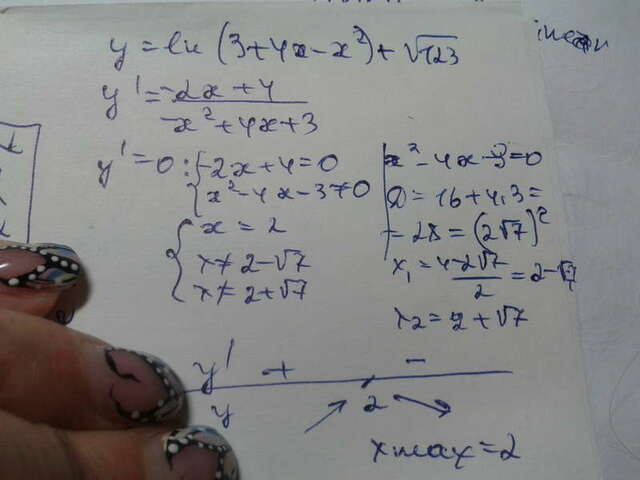 y = ln (3+4x-x²) + √123
y' = -2x+4 / -x²+4x+3
y' = 0: { -2x+4=0
x²-4x-3≠0
{ x = 2
x ≠ 2-√7
x ≠ 2+√7
x²-4x-3=0
D = 16+4·3=
= 28 = (2√7)²
x₁ = 4-2√7 / 2 = 2-√7
x₂ = 2+√7
y' + -
y ↗ 2 ↘
xmax=2